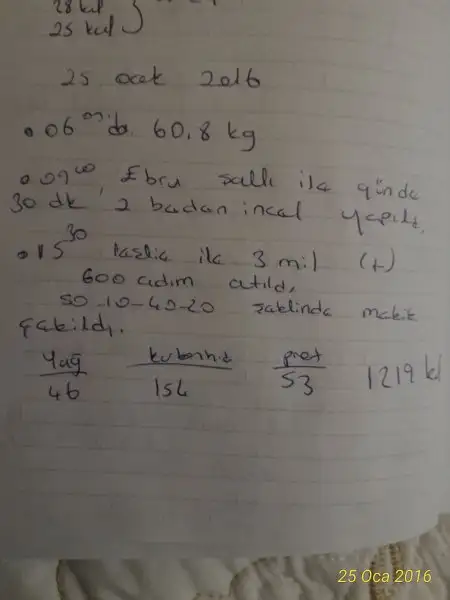 28 kul
25 kul
25 ocak 2016
• 06 da 60.8 kg
• 09⁰⁰, Ebru şallı ile günde
30 dk, 2 badan incel yapıldı.
• 15³⁰ ile 3 mil (+)
600 adım atıldı,
50-10-40-20 şeklinde mekik
çekildi.
Yağ karbonhid prot
46 154 53 1219 kl
25 Oca 2016